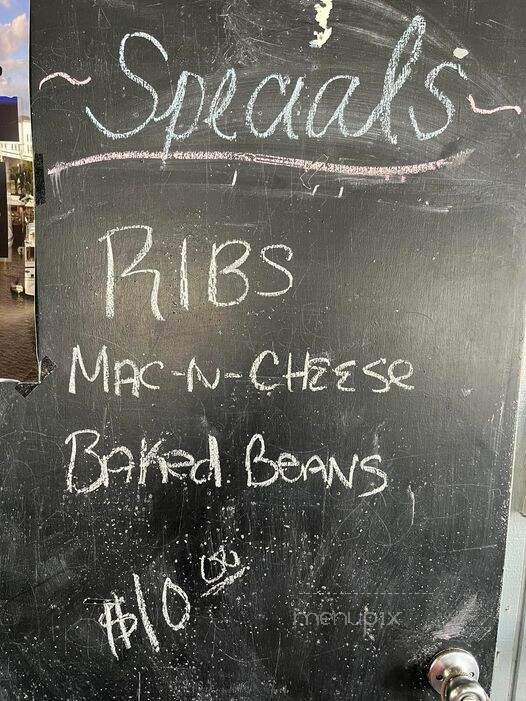 ~ Specials ~
RIBS
MAC-N-CHEESe
BAKed BeANS
$10 00
menupix